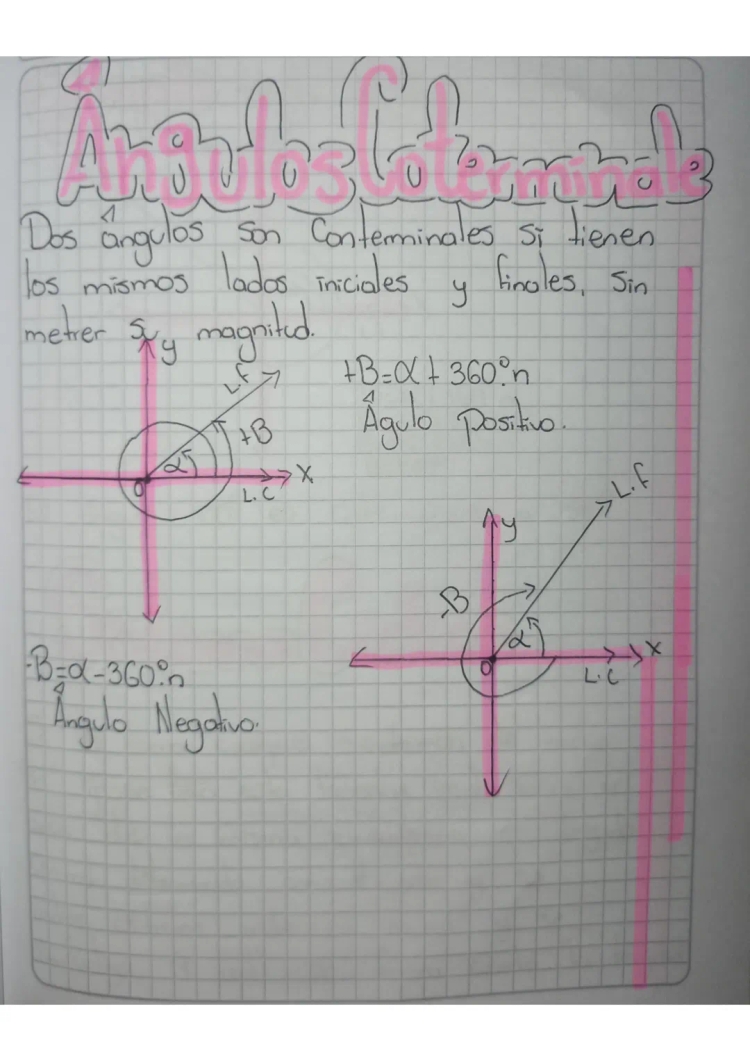 Ángulos Coterminales
Dos ángulos son Conterminales si tienen
los mismos lados iniciales y finales, sin
metrer su magnitud.
y
L.F
+B=α+360°.n
+B
Águlo Positivo.
α
X
O
L.C
L.F
y
-B
α
X
O
L.C
-B=α-360°.n
Ángulo Negativo.